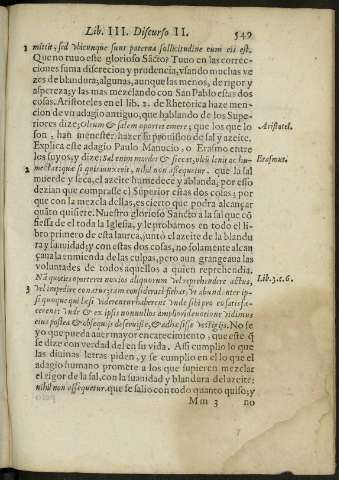 Lib. III. Discurso II. 549
mittit, sed vbicunque sunt paterna sollicitudine cum eis est.
Que no tuuo este glorioso Sācto? Tuuo en las correc-
ciones suma discrecion y prudencia, vsando muchas ve
zes de blandura; algunas, aunque las menos, de rigor y
aspereza; y las mas mezclando con San Pablo estas dos
cosas. Aristoteles en el lib. 2. de Rhetorica haze men-
cion de vn adagio antiguo, que hablando de los Supe-
riores dize; Oleum & salem oportet emere; que los que lo
son, han menester hazer su prouision de sal y azeite.
Aristotel.
Explica este adagio Paulo Manucio, o Erasmo entre
los suyos, y dize; Sal enim mordet & siccat, oleū lenit ac hu-
Erasmus.
mectat: quæ si quis iunxerit, nihil non assequetur. que la sal
muerde y seca, el azeite humedece y ablanda; por esso
dezian que comprasse el Superior estas dos cosas; por
que con la mezcla dellas, es cierto que podra alcançar
quāto quisiere. Nuestro glorioso Sancto a la sal que cō
fiessa de el toda la Iglesia, y le prouamos en todo el li-
bro primero de esta laurea, juntó el azeite de la blandu
ra y suauidad; y con estas dos cosas, no solamente alcan
çaua la enmienda de las culpas, pero aun grangeaua las
voluntades de todos aquellos a quien reprehendia.
Nā quoties oporteret nouios aliquorum vel reprehendere actus,
Lib. 3. c. 6.
vel impedire conatus;tam considerati fiebat,
si quoque qui læsi viderentur haberent vnde sibi pro eo satisfa-
cerent; vnde & ex ipsis nonnullos
eius postea & obsequijs deseruisse, & adhæsisse vestigijs. No se
yo que pueda auer mayor encarecimiento, que este q̄
se dize con verdad del en su vida. Assi cumplio lo que
las diuinas letras piden, y se cumplio en el lo que el
adagio humano promete a los que supieren mezclar
el rigor de la sal, con la suauidad y blandura del azeite:
nihil non assequetur. que se salio con todo quanto quiso; y
Mm 3 no